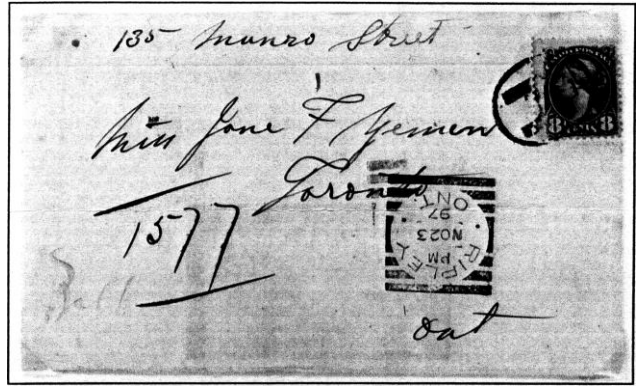 135 Munro Street
Miss Jane F Yemen
Toronto
1577
Ont
RIPLEY
PM
NO23
97
ONT.